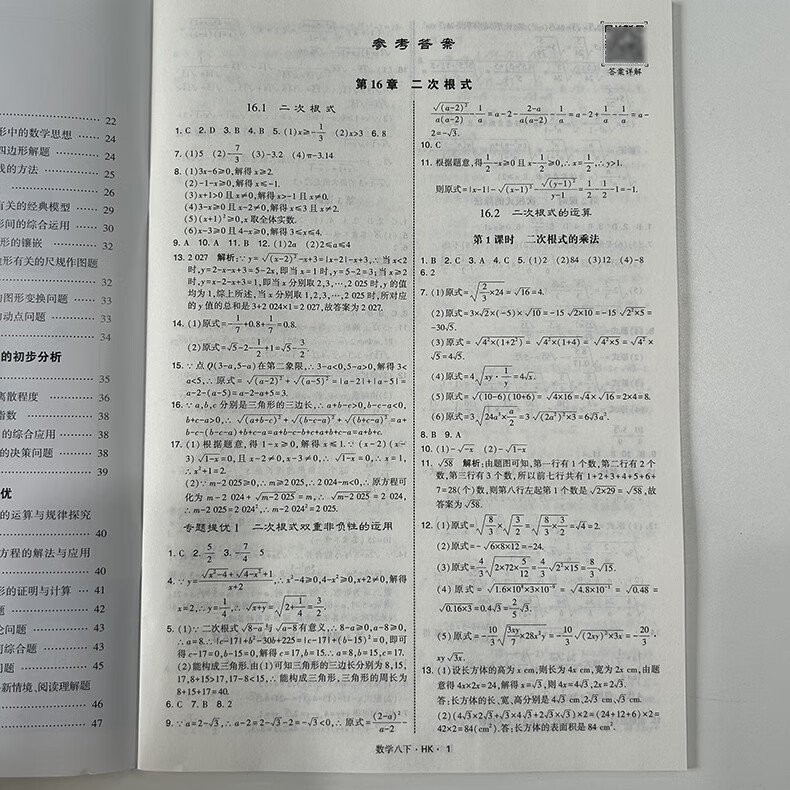 22
形中的数学思想 ······ 24
四边形解题 ······ 24
线的方法 ······ 25
······ 26
有关的经典模型 ······ 29
形间的综合运用 ······ 30
形的镶嵌 ······ 32
形有关的尺规作图题
······ 32
图形变换问题 ······ 33
动点问题 ······ 33
······ 34
的初步分析
······ 35
离散程度 ······ 36
指数 ······ 38
的综合应用 ······ 38
的决策问题 ······ 38
······ 39
优
的运算与规律探究
······ 40
方程的解法与应用
······ 40
形的证明与计算 ··· 41
题 ······ 42
论问题 ······ 43
何综合题 ······ 43
问题 ······ 45
新情境、阅读理解题
······ 46
······ 47
参考答案
答案详解
第16章 二次根式
16.1 二次根式
1. C 2. D 3. B 4. B 5. (1)x≥-1/3 (2)x>3 6. 8
7. (1)5 (2)-7/3 (3)-3.2 (4)π-3.14
8. (1)3x-6≥0,解得 x≥2.
(2)-1-x≥0,解得 x≤-1.
(3)x+1>0 且 x≠0,解得 x>-1 且 x≠0.
(4)3-x≥0 且 x-2≠0,解得 x≤3 且 x≠2.
(5)(x+1)²≥0,x 取全体实数.
(6)x-3≥0 且 4-x≥0,解得 3≤x≤4.
9. A 10. A 11. B 12. (1)2a (2)2≤a≤4
13. 2 027 解析:∵y=√(x-2)²-x+3=|x-2|-x+3,∴当 x<2
时,y=2-x-x+3=5-2x,即当 x=1 时,y=5-2=3;当 x≥2
时,y=x-2-x+3=1,即当 x 分别取 2,3,…,2 025 时,y 的值
均为 1,综上所述,当 x 分别取 1,2,3,…,2 025 时,所对应
的 y 值的总和是 3+2 024×1=2 027,故答案为 2 027.
14. (1)原式=-1/7+0.8+1/7=0.8.
(2)原式=√5-2-1/2+1=√5-3/2.
15. ∵点 Q(3-a,5-a)在第二象限,∴3-a<0,5-a>0,解得 3<
a<5,∴原式=√(a-2)²+√(a-5)²=|a-2|+|a-5|=
a-2-(a-5)=a-2-a+5=3.
16. ∵a,b,c 分别是三角形的三边长,∴a+b-c>0,b-c-a<0,
b+c-a>0,∴√(a+b-c)²+√(b-c-a)²+√(b+c-a)²=a+
b-c-(b-c-a)+b+c-a=a+b-c-b+c+a+b+c-a=a+b+c.
17. (1)根据题意,得 1-x≥0,解得 x≤1.∵(x-2)(x-
3)√1-x=0,且 x-2≠0,x-3≠0,∴√1-x=0,∴x=1,
∴x²+1=2.
(2)∵m-2 025≥0,∴m≥2 025,∴2 024-m<0,∴原方程可
化为 m-2 024+√m-2 025=m,∴√m-2 025=2 024,
∴m-2 025=2 024²,∴m-2 024²=2 025.
专题提优1 二次根式双重非负性的运用
1. C 2. 5/2 3. -7/4 5
4. ∵y=(√x²-4+√4-x²+1)/(x+2),∴x²-4≥0,4-x²≥0,x+2≠0,解得
x=2,∴y=1/4,∴√x+y=√(2+1/4)=3/2.
5. (1)∵二次根式√8-a与√a-8有意义,∴8-a≥0,a-8≥0,
∴a=8.∴|c-17|+b²-30b+225=|c-17|+(b-15)²=0,即可
得 c-17=0,b-15=0,解得 c=17,b=15.∴a=8,b=15,c=17.
(2)能构成三角形.由(1)可知三角形的三边长分别为 8,15,
17,8+15>17,17-8<15,∴能构成三角形,三角形的周长为
8+15+17=40.
6. C 7. B 8. 2
9. ∵a=2-√3,∴a-2=2-√3-2=-√3<0,∴原式=(2-a)²/(a-2)-
√(a-2)²/(a(a-2))-1/a=a-2-(2-a)/(a(a-2))-1/a=a-2+1/a-1/a=a-
2=-√3.
10. C
11. 根据题意,得1/2-x≥0 且 x-1/2≥0,∴x=1/2,∴y>1.
则原式=|x-1|-√(x-1)²+√(y-1)²/(y-1)=1/2-1/2+1=1.
16.2 二次根式的运算
第1课时 二次根式的乘法
1. B 2. C 3. A 4. C 5. (1)2 (2)84 (3)12 (4)-8
6. 2
7. (1)原式=√(2/3×24)=√16=4.
(2)原式=3×√2×(-5)×√10=-15√2×10=-15√2²×5=
-30√5.
(3)原式=√4²×(1+2²)=√4²×(1+4)=√4²×5=√4²×
√5=4√5.
(4)原式=4√(xy·1/y)=4√x.
(5)原式=√(10-6)(10+6)=√4×16=√4×√16=2×4=8.
(6)原式=3√(24a³×a/2)=3√(2a²)²×3=6√3a².
8. B 9. A
10. (1)-√-x (2)-√1-x
11. √58 解析:由题图可知,第一行有 1 个数,第二行有 2 个
数,第三行有 3 个数,所以前七行共有 1+2+3+4+5+6+
7=28(个)数,则第八行左起第 1 个数是√2×29=√58,故
答案为√58.
12. (1)原式=√(8/3)×√(3/2)=√(8/3×3/2)=√4=2.
(2)原式=-√6×8×12=-24.
(3)原式=4/3√(2×72×5/12)=4/3√2²×15=8/3√15.
(4)原式=√1.6×10⁴×3×10⁻⁵=√4.8×10⁻¹=√0.48=
√0.16×3=0.4√3=2/5√3.
(5)原式=-10/3√(3xy/7×28x²y)=-10/3√(2xy)²×3x=-20/3·
xy√3x.
13. (1)设长方体的高为 x cm,则长为 4x cm,宽为 2x cm,由题
意得 4x×2x=24,解得 x=√3,则 4x=4√3,2x=2√3.
答:长方体的长、宽、高分别是 4√3 cm,2√3 cm,√3 cm.
(2)(4√3×2√3+√3×4√3+2√3×√3)×2=(24+12+6)×2=
42×2=84(cm²).答:长方体的表面积是 84 cm².
数学八下·HK·1